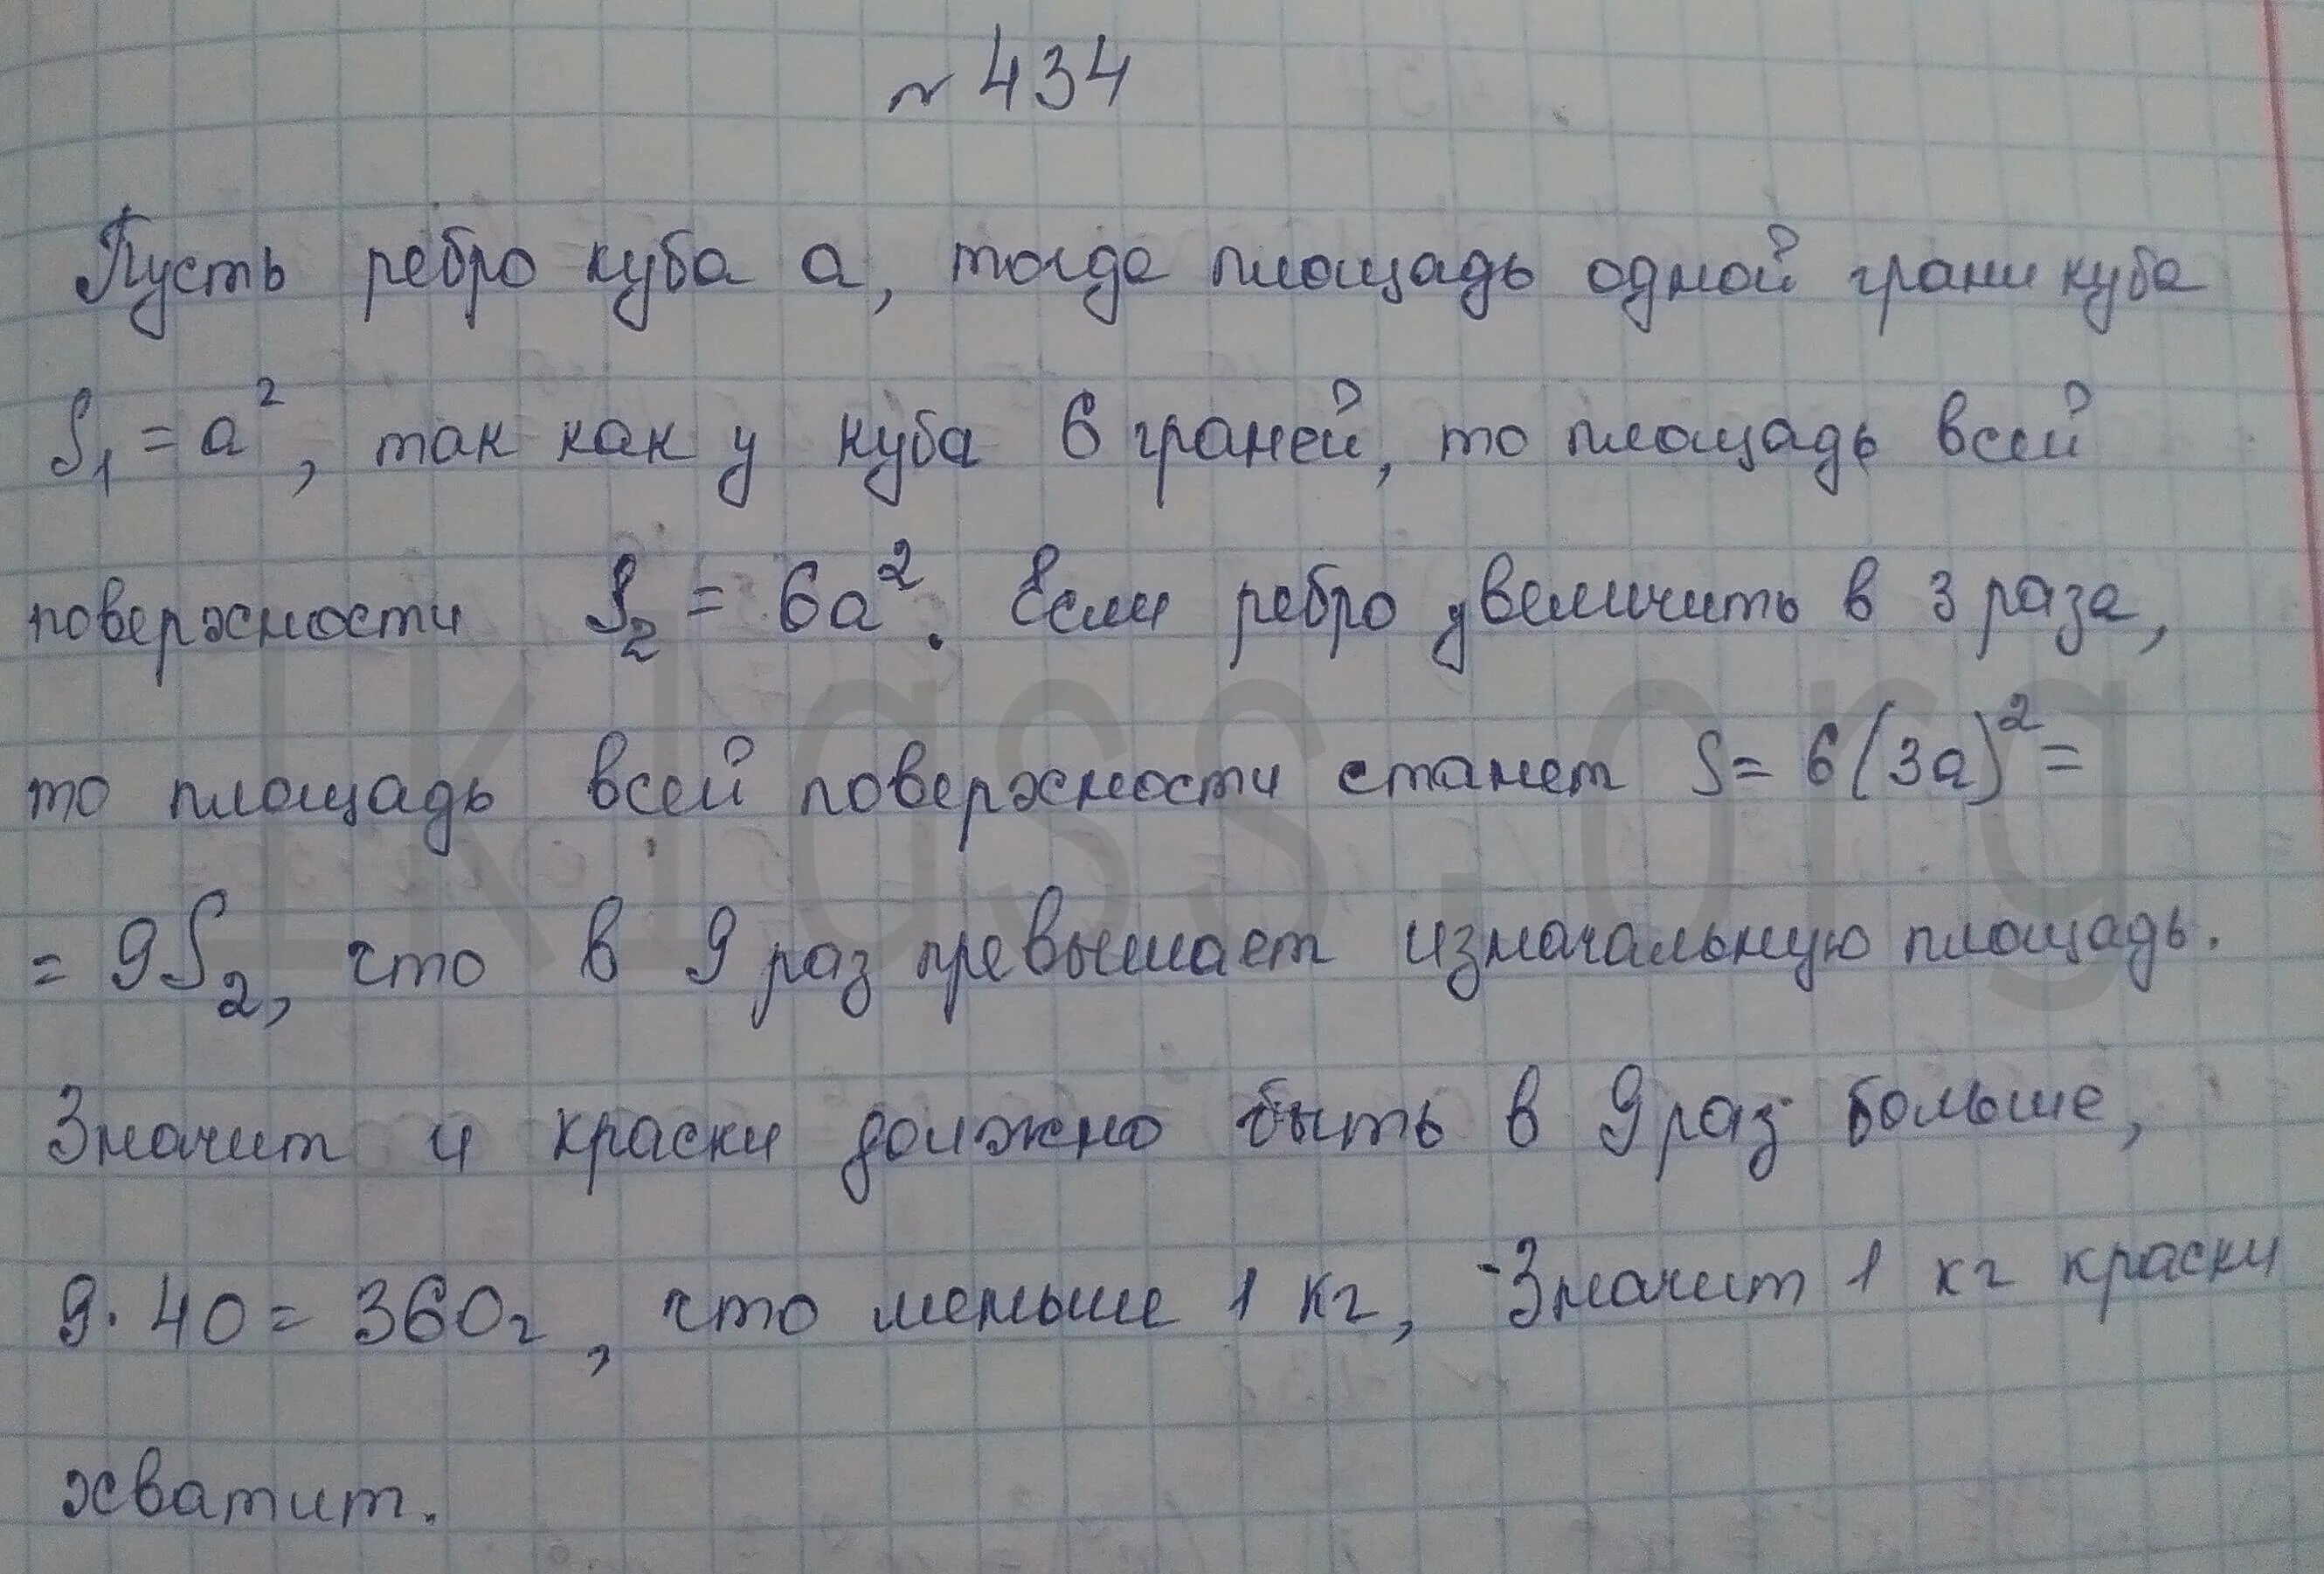 № 434
Пусть ребро куба a, тогда площадь одной грани куба
S₁ = a², так как у куба 6 граней, то площадь всей
поверхности S₂ = 6a². Если ребро увеличить в 3 раза,
то площадь всей поверхности станет S = 6(3a)² =
= 9S₂, что в 9 раз превышает изначальную площадь.
Значит и краски должно быть в 9 раз больше,
9 · 40 = 360г, что меньше 1 кг, Значит 1 кг краски
хватит.
1klass.org